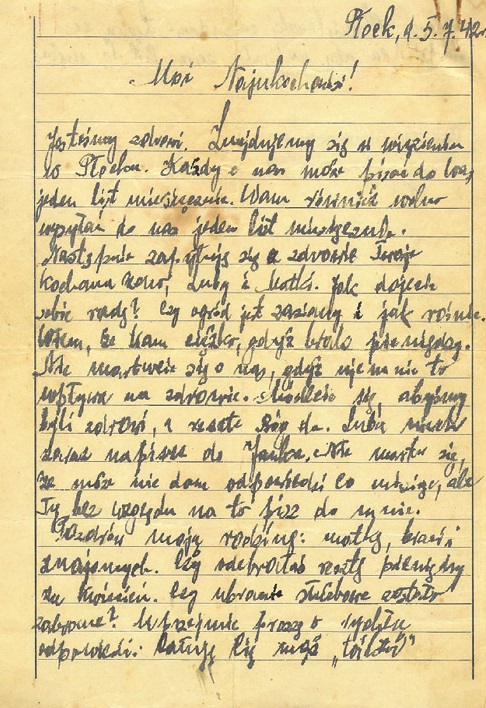 Płock, d. 5.7.42r.
Moi Najukochańsi!
Jesteśmy zdrowi. Znajdujemy się w więzieniu
w Płocku. Każdy z nas może pisać do Was
jeden list miesięcznie. Wam również wolno
wysyłać do nas jeden list miesięcznie.
Następnie zapytuję się o zdrowie Twoje
kochana żono, Luby i Matki. Jak dajecie
sobie rady? Czy ogród jest zasiany i jak rośnie.
Wiem, że Wam ciężko, gdyż brak pieniędzy.
Nie martwcie się o nas, gdyż ujemnie to
wpływa na zdrowie. Módlcie się, abyśmy
byli zdrowi, a resztę Bóg da. Luba niech
zaraz napisze do Janka. Nie martw się,
że może nie dam odpowiedzi co miesiąc, ale
Ty bez względu na to pisz do mnie.
Pozdrów moją rodzinę: matkę, braci i
znajomych. Czy odebrałaś resztę pieniędzy
za kwiecień. Czy ubranie służbowe zostało
zabrane? Uprzejmie proszę o rychłą
odpowiedź. Całuję Cię mąż